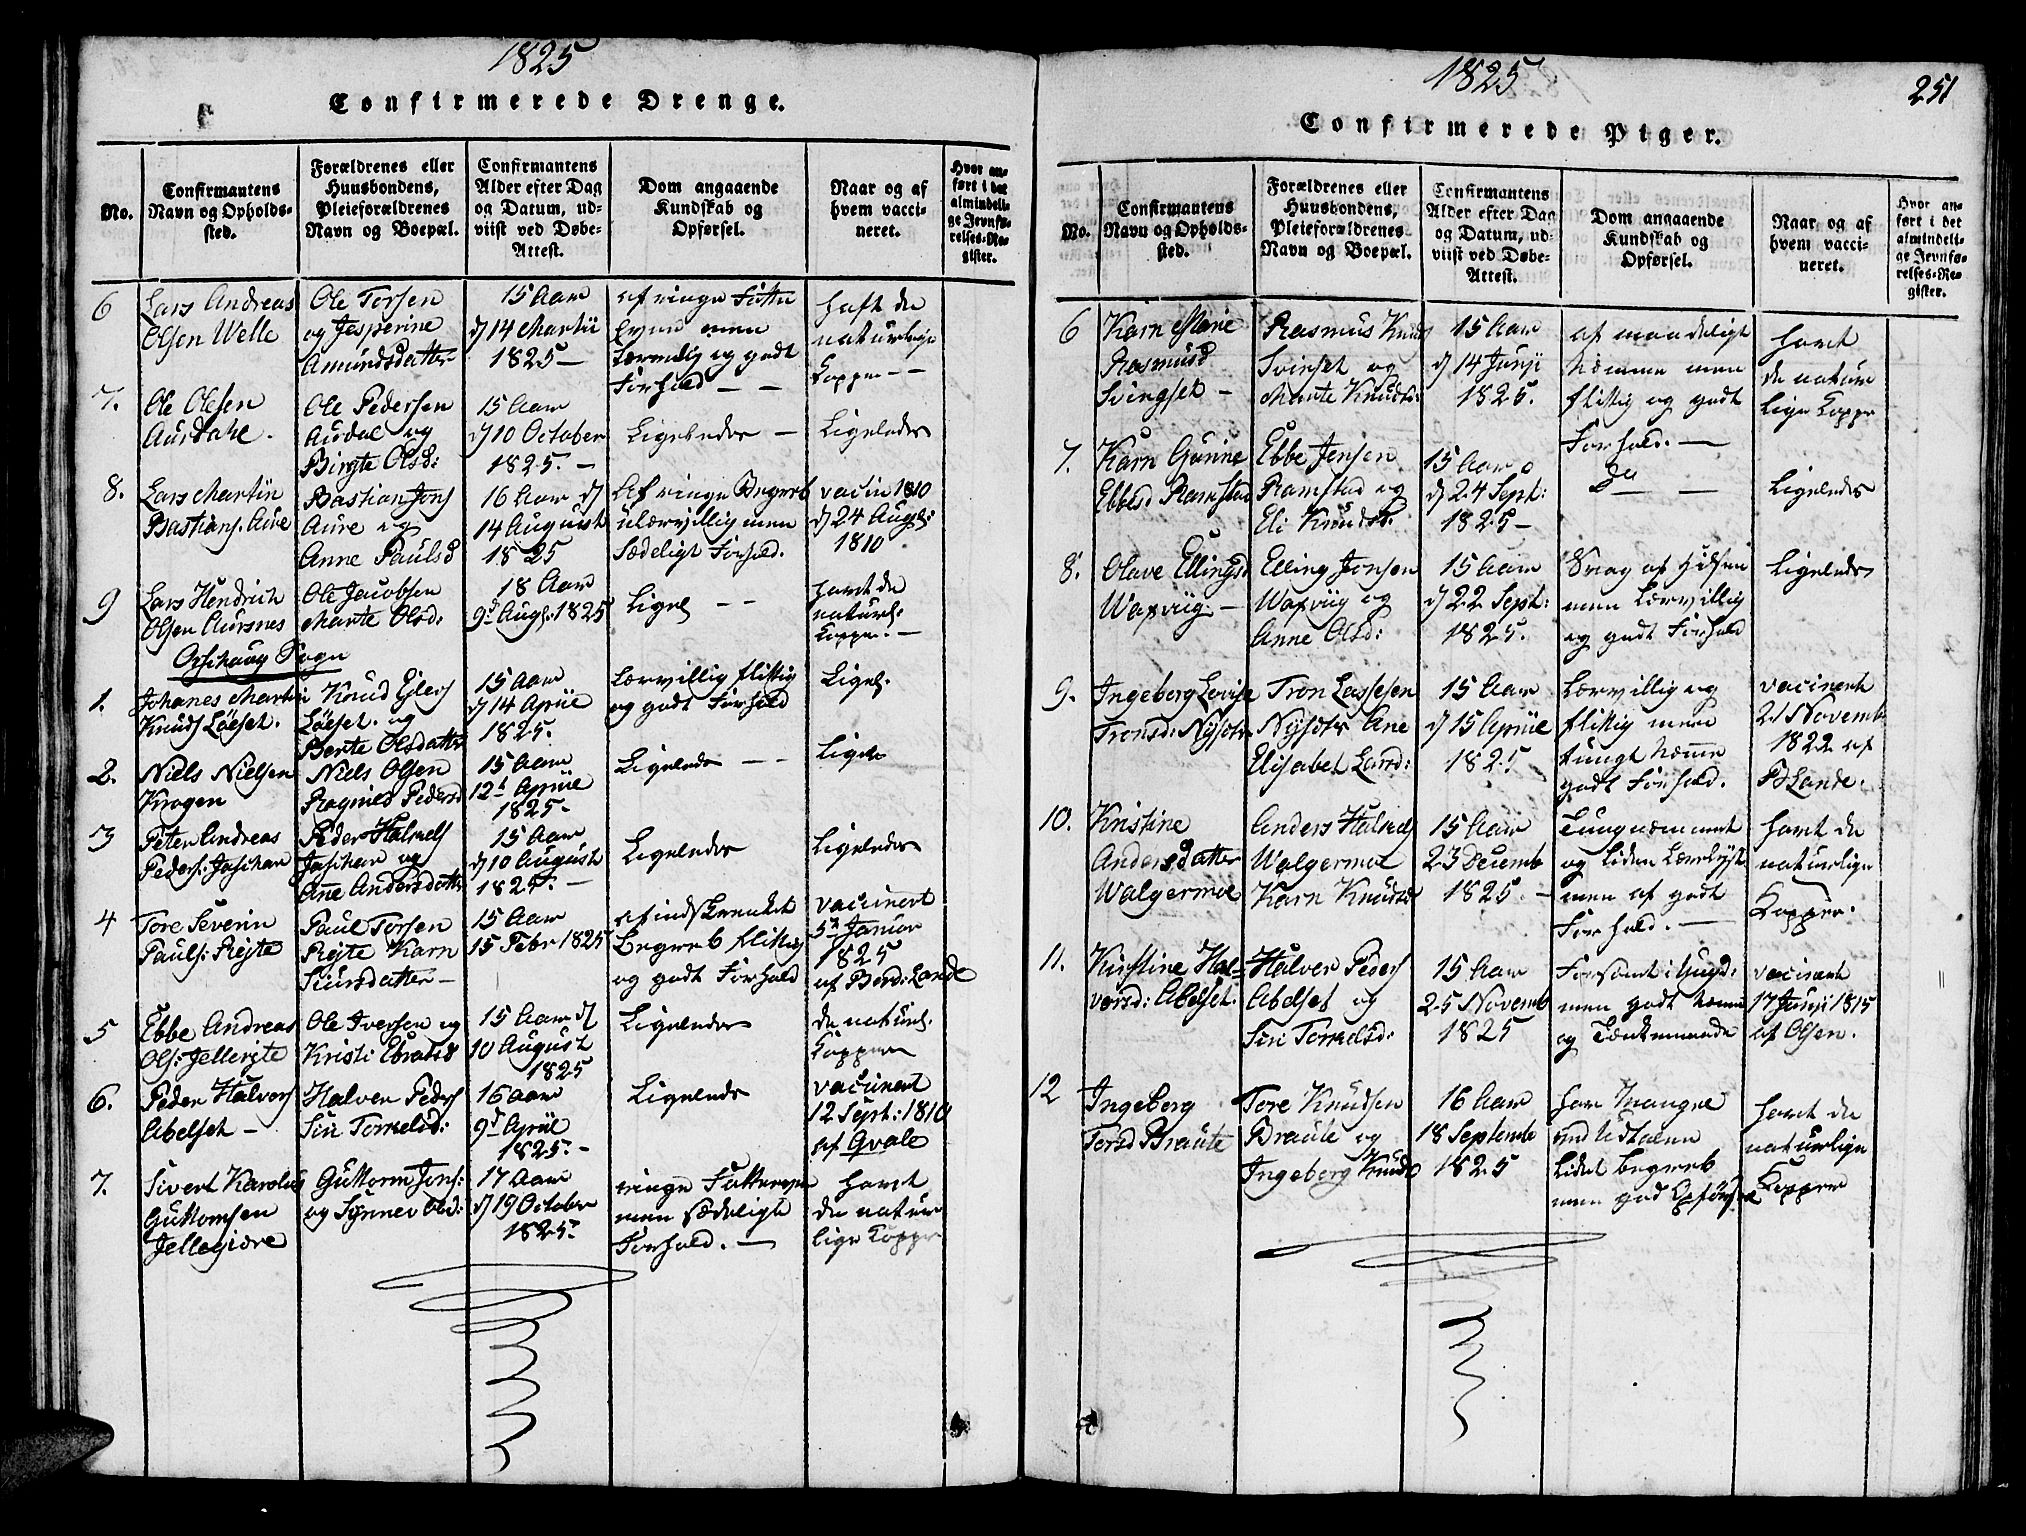 1825
Confirmerede Drenge.
No.
Confirmantens
Navn og Opholds-
sted.
Forældrenes eller
Huusbondens,
Pleieforældrenes
Navn og Boepæl.
Confirmantens
Alder efter Dag
og Datum, ud-
viist ved Døbe-
Attest.
Dom angaaende
Kundskab og
Opførsel.
Naar og af
hvem vacci-
neret.
Hvor an-
ført i det
almindeli-
ge Jevnfø-
relses-Re-
gister.
6
Lars Andreas
Olsen Welle
Ole Torsen
og Jasperine
Amundsdatter
15 Aar
d 14 Martii
1825 —
af ringe Fatte
Evne men
lærvillig og godt
Forhold — —
haft de
naturlige
Kopper — —
7.
Ole Olesen
Aurdahl.
Ole Pedersen
Audal og
Birgte Olsd:
15 Aar
d 10 October
1825. —
Ligeledes —
Ligeledes
8.
Lars Martin
Bastians. Aure
Bastian Jons
Aure og
Anne Paulsd
16 Aar d
14 August
1825
Af ringe Begreb
ulærvillig men
sædeligt Forhold.
vacin 1810
d 24 Augst:
1810
9
Lars Hendrich
Olsen Aursnes
Ole Jacobsen
Marte Olsd:
18 Aar
9d Augs: 1825
Ligel — —
havt de
naturl.
Kopper. —
Ørschoug Sogn
1.
Johanes Martin
Knuds Løeset.
Knud Ejlers
Løeset. og
Berte Olsdatter
15 Aar
d 14 Apriie
1825.
Lærvillig flittig
og godt Forhold
Ligel.
2.
Niels Nielsen
Krogen
Niels Olsen
Ragnild Pedersd
15 Aar
12t Apriie
1825.
Ligelede — —
Ligele
3
Peter Andreas
Peders:
Peder Halvels
og
Ane Andersdatter
15 Aar
d 10 August
1825. —
Ligeledes
Ligeledes
4
Tore Severin
Pauls: Rejte
Paul Torsen
Rejte Karn
Siursdatter —
15 Aar
15 Febr 1825
af indskrenket
Begreb flittig
og godt Forhold
vaccinert
5t Januar
1825
af Bersd: Lande
5
Ebbe Andreas
Ols: Jellerejte
Ole Iversen og
Kristi
15 Aar d
10 August
1825
Ligeledes
de naturl.
Kopper
6.
Peder Halvors
Abelset —
Halver Peders
Siri Tormelsd:
16 Aar
9d Apriil
1825. —
Ligelede
vacinert
12 Sept: 1810
af Qvale
7.
Sivert Karolus
Guttormsen
Jellegjære
Guttorm Jons:
og Synnev Olsd:
17 Aar
d 19 October
1825.
ringe Fatteevne
men sædeligt
Forhold. —
havt
de natur
lige Kopper
1825
251
Confirmerede Piger.
No.
Confirmantens
Navn og Opholds-
sted.
Forældrenes eller
Huusbondens,
Pleieforældrenes
Navn og Boepæl.
Confirmantens
Alder efter Dag
og Datum, ud-
viist ved Døbe-
Attest.
Dom angaaende
Kundskab og
Opførsel.
Naar og af
hvem vacci-
neret.
Hvor an-
ført i det
almindeli-
ge Jevnfø-
relses-Re-
gister.
6
Karn Marie
Rasmusd
Svingset —
Rasmus Knuds
Svinset og
Marte Knudsd:
15 Aar
d 14 Junji
1825.
af maadeligt
Næmme men
flittig og godt
Forhold. —
havt
de natur
lige Kopper
7.
Karn Gurine
Ebbesd. Ramstad
Ebbe Jensen
Ramstad og
Eli Knudsd.
15 Aar
d 24 Sept:
1825 —
Do — —
Ligeledes
8.
Olave Ellingsd
Waxviig —
Elling Jonsen
Waxviig og
Anne Olsd:
15 Aar
d 22 Sept:
1825.
Svag af
men Lærvillig
og godt Forhold
Ligeledes
9.
Ingeborg Lovise
Tronsd: Nysætr
Tron Lassesen
Nysætr Ane
Elisabet Larsd:
15 Aar
d 15 Apriie
1825
Lærvillig og
flittig mere
tungt næmme
godt Forhold.
vacinert
21 Novemb
1822 af
B Lande.
10.
Kristine
Andersdatter
Walgermoe
Anders Halvels
Walgermoe
Karn Knudsd
15 Aar
23 Decemb
1825. —
Tungnæmmet
og liden Lærelyst
men af godt
Forhold. —
havt de
naturlige
Kopper.
11.
Kirstine Hal=
versd: Abelset.
Halver Peders
Abelset og
Siri Tormelsd:
15 Aar
25 Novemb
1825
Forsømt i Ungd:
men godt næme
og Tænksomede
vacinert
17 Junji 1815
af Olsen.
12
Ingeborg
Torsd Braute
Tore Knudsen
Braute og
Ingeborg Knudsd
16 Aar
18 Septembe
1825
har Mangel
ved Udtalen
lidet begreb
men god Opførsel
havt de
naturlige
Kopper